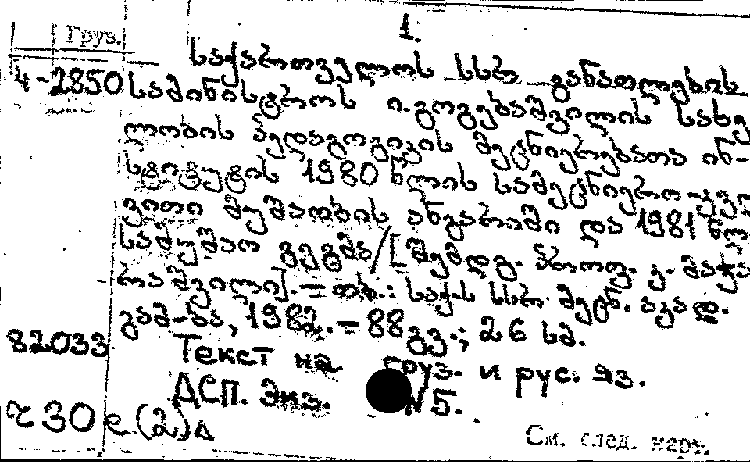 Груз. 1.
საქართველოს სსრ განათლების
4-2850 სამინისტროს ი.გოგებაშვილის სახე
ლობის პედაგოგიკის მეცნიერებათა ინ-
სტიტუტის 1980 წლის სამეცნიერო-კვლე
ვითი მუშაობის ანგარიში და 1981 წლ
სამუშაო გეგმა/[შემდგ. პროფ. ვ. კაჭა
რაშვილი].=თბ.: საქ.სსრ მეცნ. აკად.
გამ-ბა, 1982.=88 გვ.; 26 სმ.
82033 Текст на груз. и рус. яз.
ДСП. Экз. N5.
г30 е(2)д
См. след. карт.